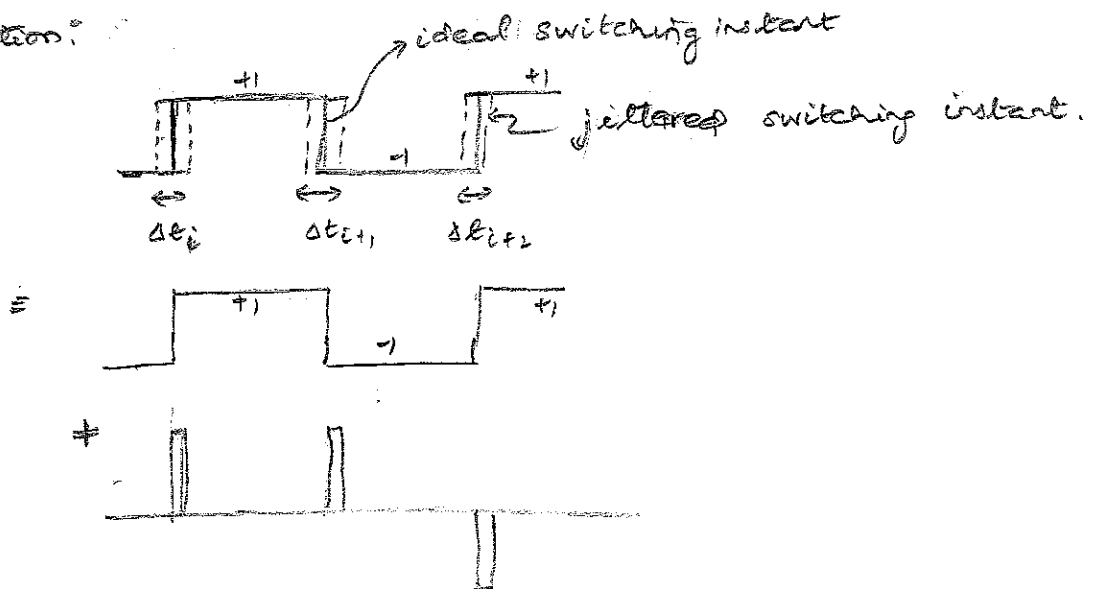 tion:
ideal switching instant
+1 +1
jittered switching instant.
-1
Δt_i Δt_{i+1} Δt_{i+2}
≡ +1 -1 +1
+